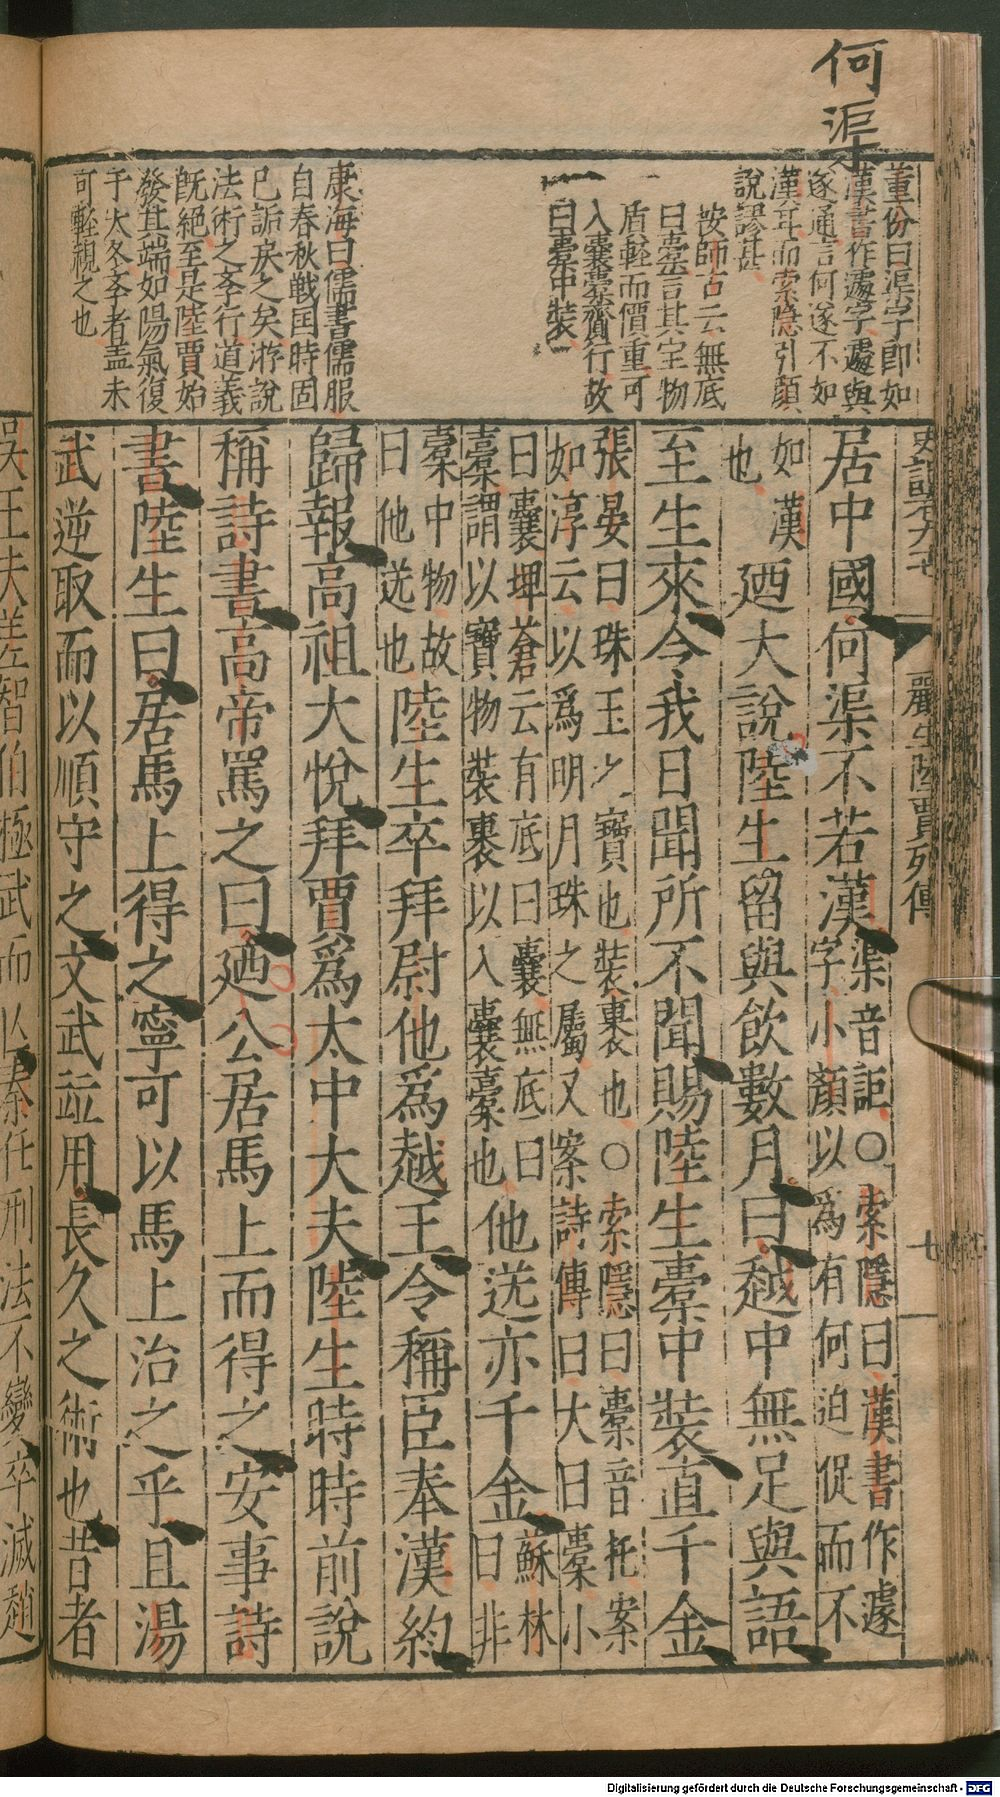 何渠
董份曰渠字即如
漢書作遽字遽與
遂通言何遂不如
漢耳而索隱引顏
說謬甚
按師古云無底
曰橐言其宝物
盾軽而價重可
入囊橐齎行故
曰橐中裝
康海曰儒書儒服
自春秋戦国時固
已詬戾之矣游說
法術之李行道義
既絕至是陸賈始
發其端如陽氣復
于大冬李者盖未
可輕視之也
史記卷九七
酈生陸賈列傳
七
居中國何渠不若漢渠音詎○索隱曰漢書作遽
字小顏以爲有何迫促而不
如漢
也
廼大說陸生留與飲數月曰越中無足與語
至生來令我日聞所不聞賜陸生橐中裝直千金
張晏曰珠玉之寶也裝裹也○索隱曰橐音托案
如淳云以爲明月珠之屬又案詩傳曰大曰橐小
曰囊埤蒼云有底曰囊無底曰
橐謂以寶物裝裹以入囊橐也
他送亦千金蘇林
曰非
橐中物故
曰他送也
陸生卒拜尉他爲越王令稱臣奉漢約
歸報高祖大悅拜賈爲太中大夫陸生時時前說
稱詩書高帝罵之曰廼公居馬上而得之安事詩
書陸生曰居馬上得之寧可以馬上治之乎且湯
武逆取而以順守之文武竝用長久之術也昔者
吳王夫差智伯極武而以秦任刑法不變卒滅趙
Digitalisierung gefördert durch die Deutsche Forschungsgemeinschaft - DFG